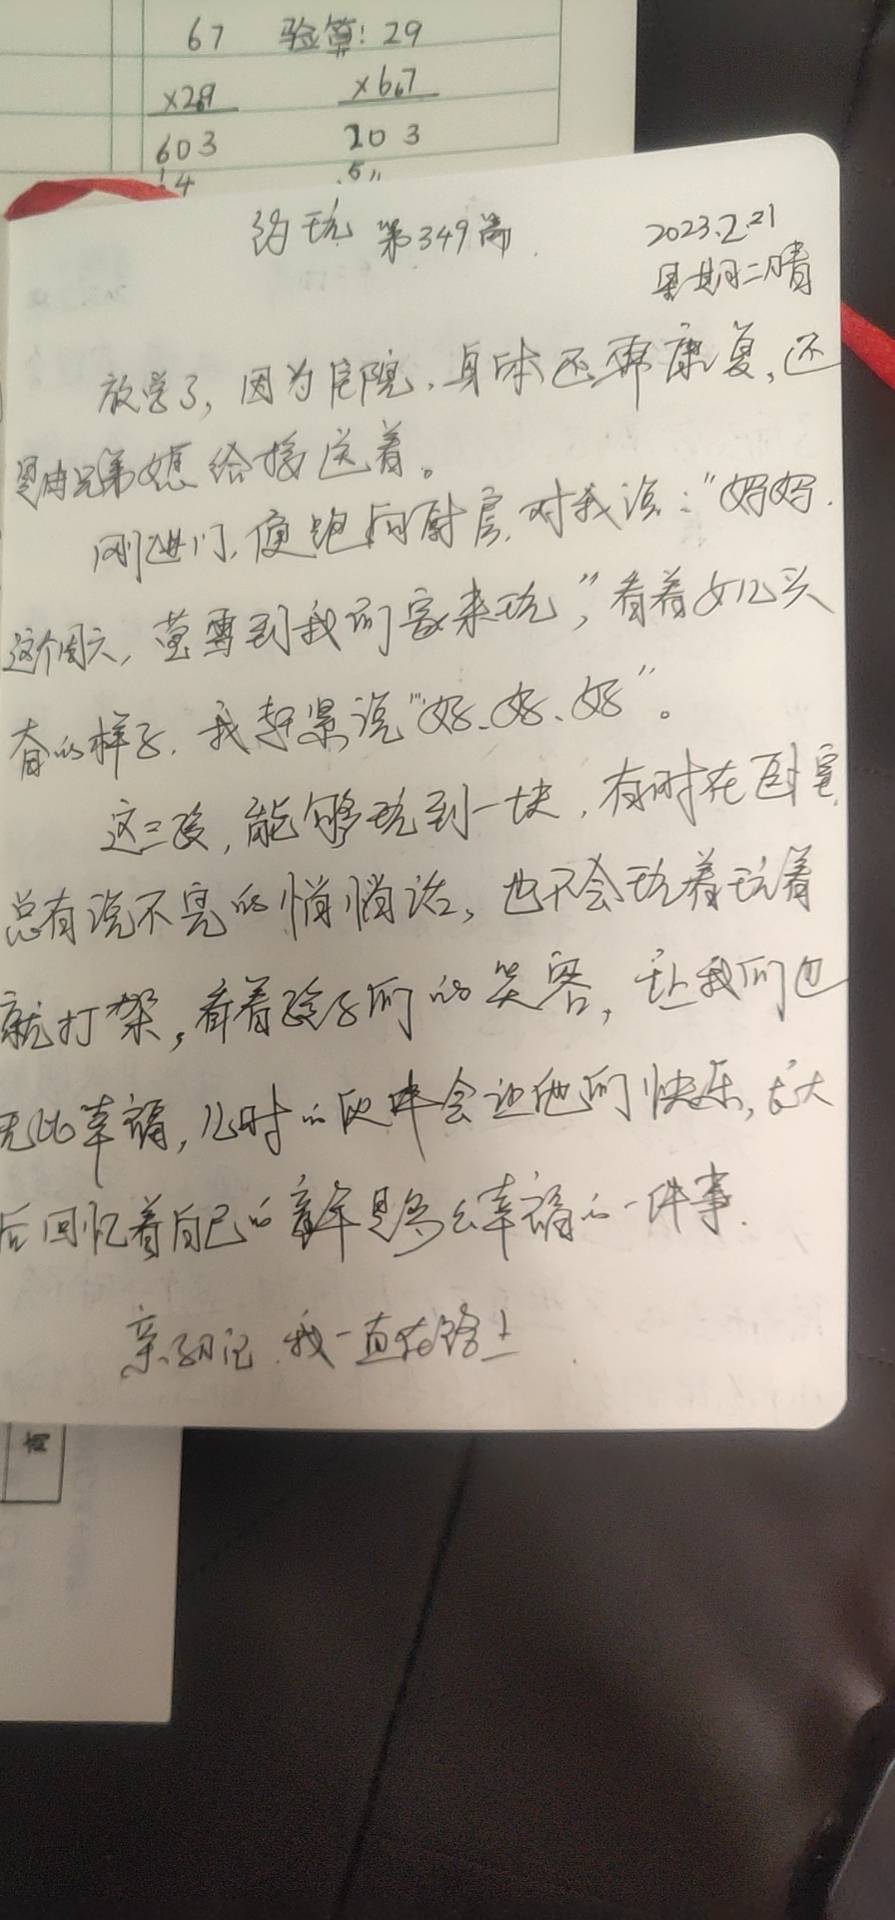 67 验算:29
×29 ×67
603 203
约玩 第349篇
2023.2.21
星期二 晴
放学了,因为住院,身体还需康复,还
是由兄弟媳给接送着。
刚进门,便跑向厨房,对我说:"妈妈,
这个周六,萱雪到我们家来玩",看着女儿兴
奋的样子,我赶紧说"好、好、好"。
这三孩,能够玩到一块,有时在卧室,
总有说不完的悄悄话,也不会玩着玩着
就打架,看着孩子们的笑容,让我们也
无比幸福,儿时的伙伴会让他们快乐,长大
后回忆着自己的童年是多么幸福的一件事.
亲子日记 我一直在路上